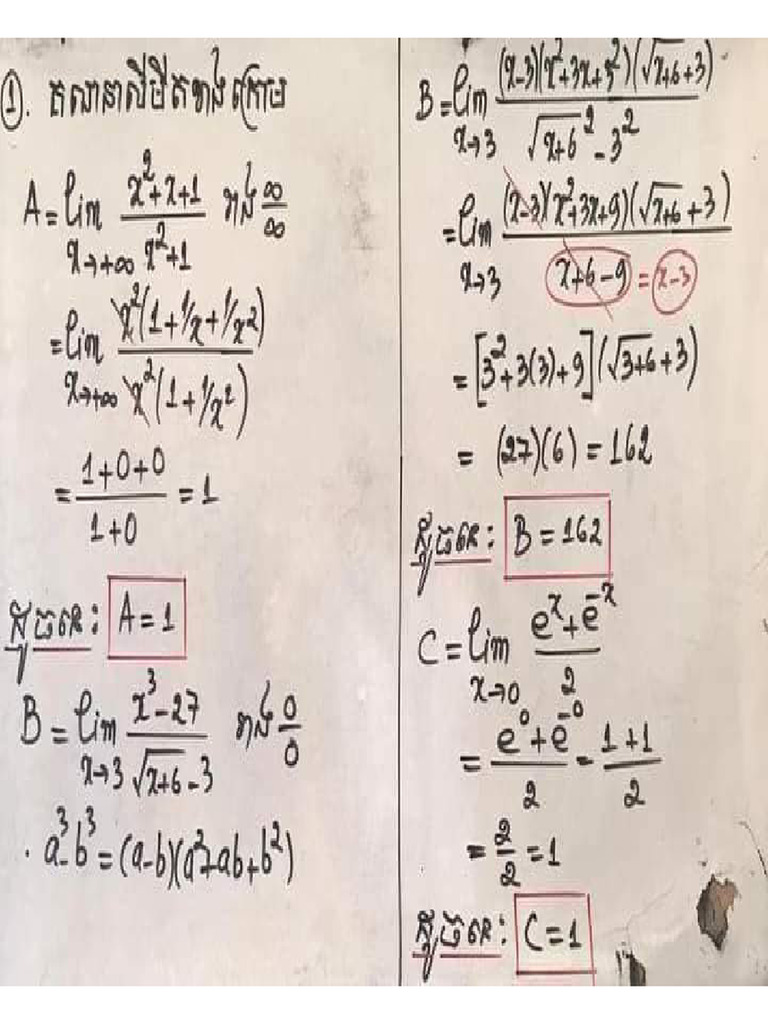 ①. គណនាលីមីតខាងក្រោម
A = lim x→+∞ (x²+x+1)/(x²+1) រាង ∞/∞
= lim x→+∞ x²(1+1/x+1/x²)/x²(1+1/x²)
= (1+0+0)/(1+0) = 1
ដូចនេះ: A = 1
B = lim x→3 (x³-27)/(√(x+6)-3) រាង 0/0
· a³-b³ = (a-b)(a²+ab+b²)
B = lim x→3 (x-3)(x²+3x+3²)(√(x+6)+3)/(√(x+6)²-3²)
= lim x→3 (x-3)(x²+3x+9)(√(x+6)+3)/(x+6-9) = x-3
= [3²+3(3)+9](√(3+6)+3)
= (27)(6) = 162
ដូចនេះ: B = 162
C = lim x→0 (eˣ+e⁻ˣ)/2
= (e⁰+e⁻⁰)/2 = (1+1)/2
= 2/2 = 1
ដូចនេះ: C = 1